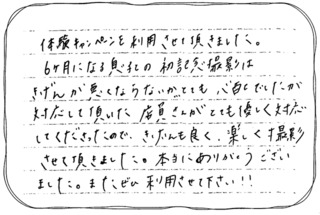 体験キャンペーンを利用させて頂きました。
6ヶ月になる息子の初記念撮影は
きげんが悪くならないかとても心配でしたが
対応して頂いた店員さんがとても優しく対応
してくださったので、きげんも良く、楽しく撮影
させて頂きました。本当にありがとうござい
ました。またぜひ利用させて下さい!!